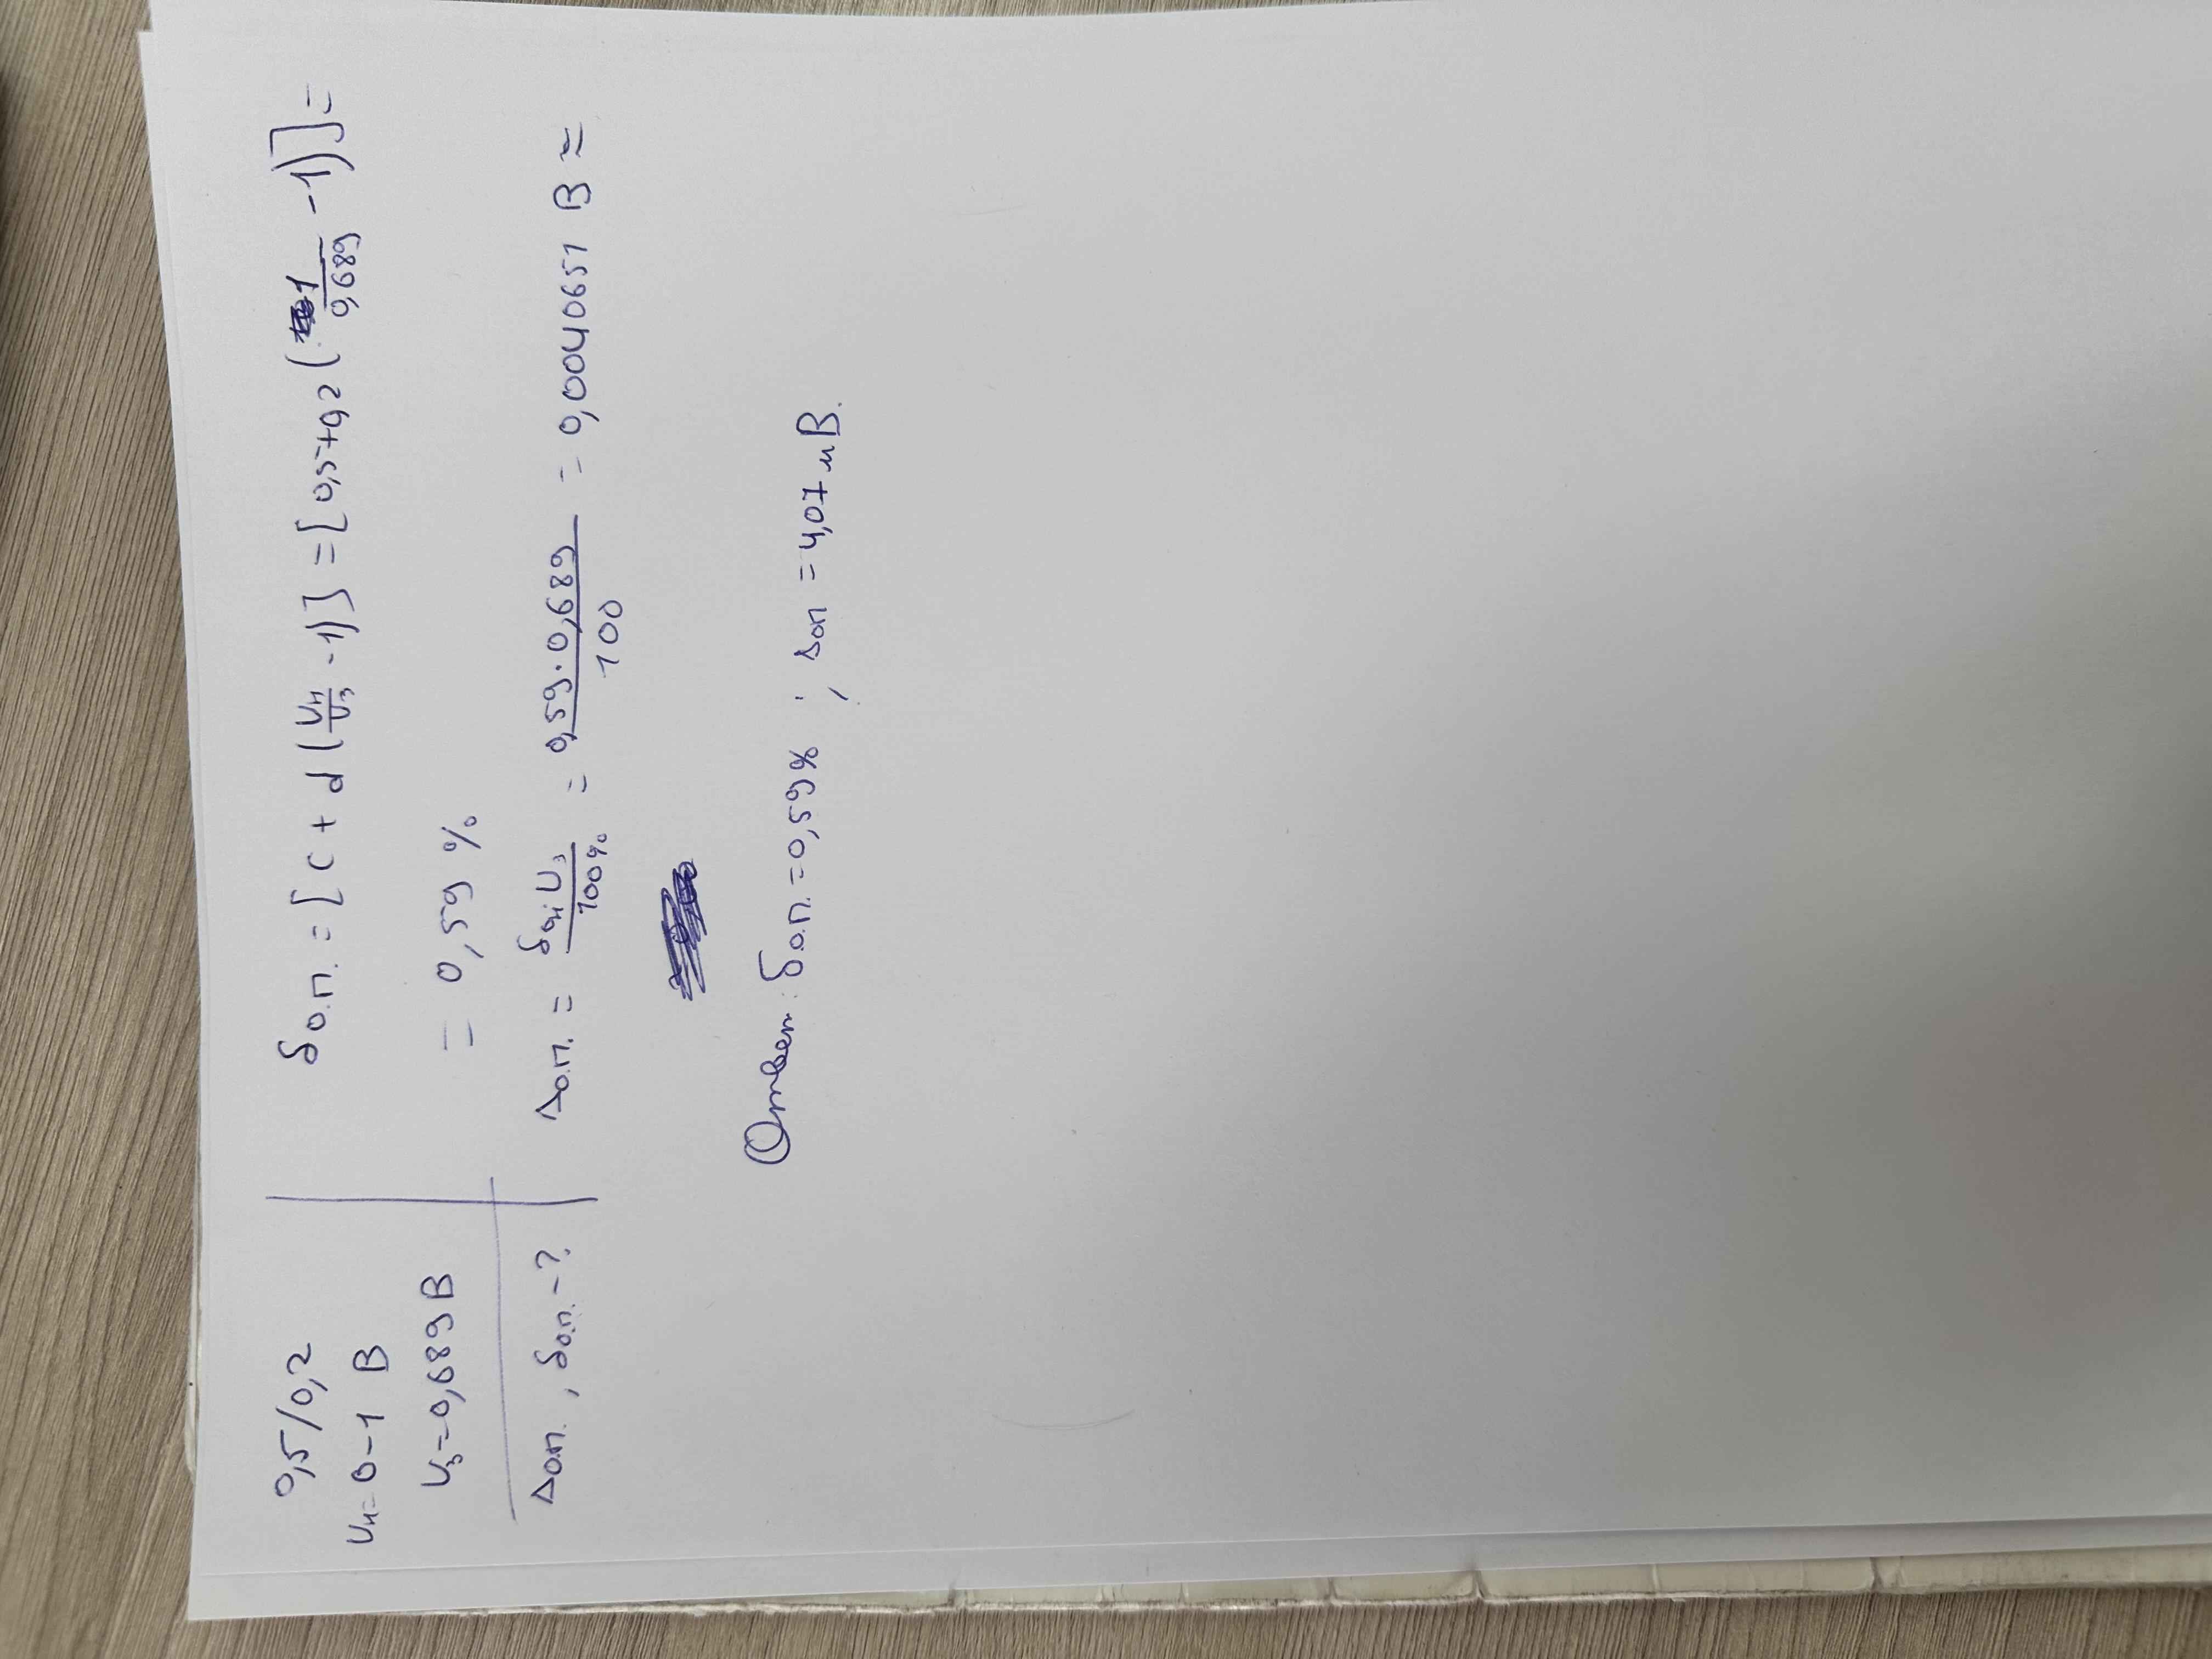 0,5/0,2
Uн=0-1 В
U₃=0,689В
Δо.п., δо.п. -?
δо.п. = [c + d (Uн/U₃ - 1)] = [0,5+0,2 (1/0,689 - 1)] =
= 0,59 %
Δо.п. = δо.п. U₃/100% = 0,59·0,689/100 = 0,0040651 В ≈
Ответ: δо.п. = 0,59% ; Δоп = 4,07 мВ.